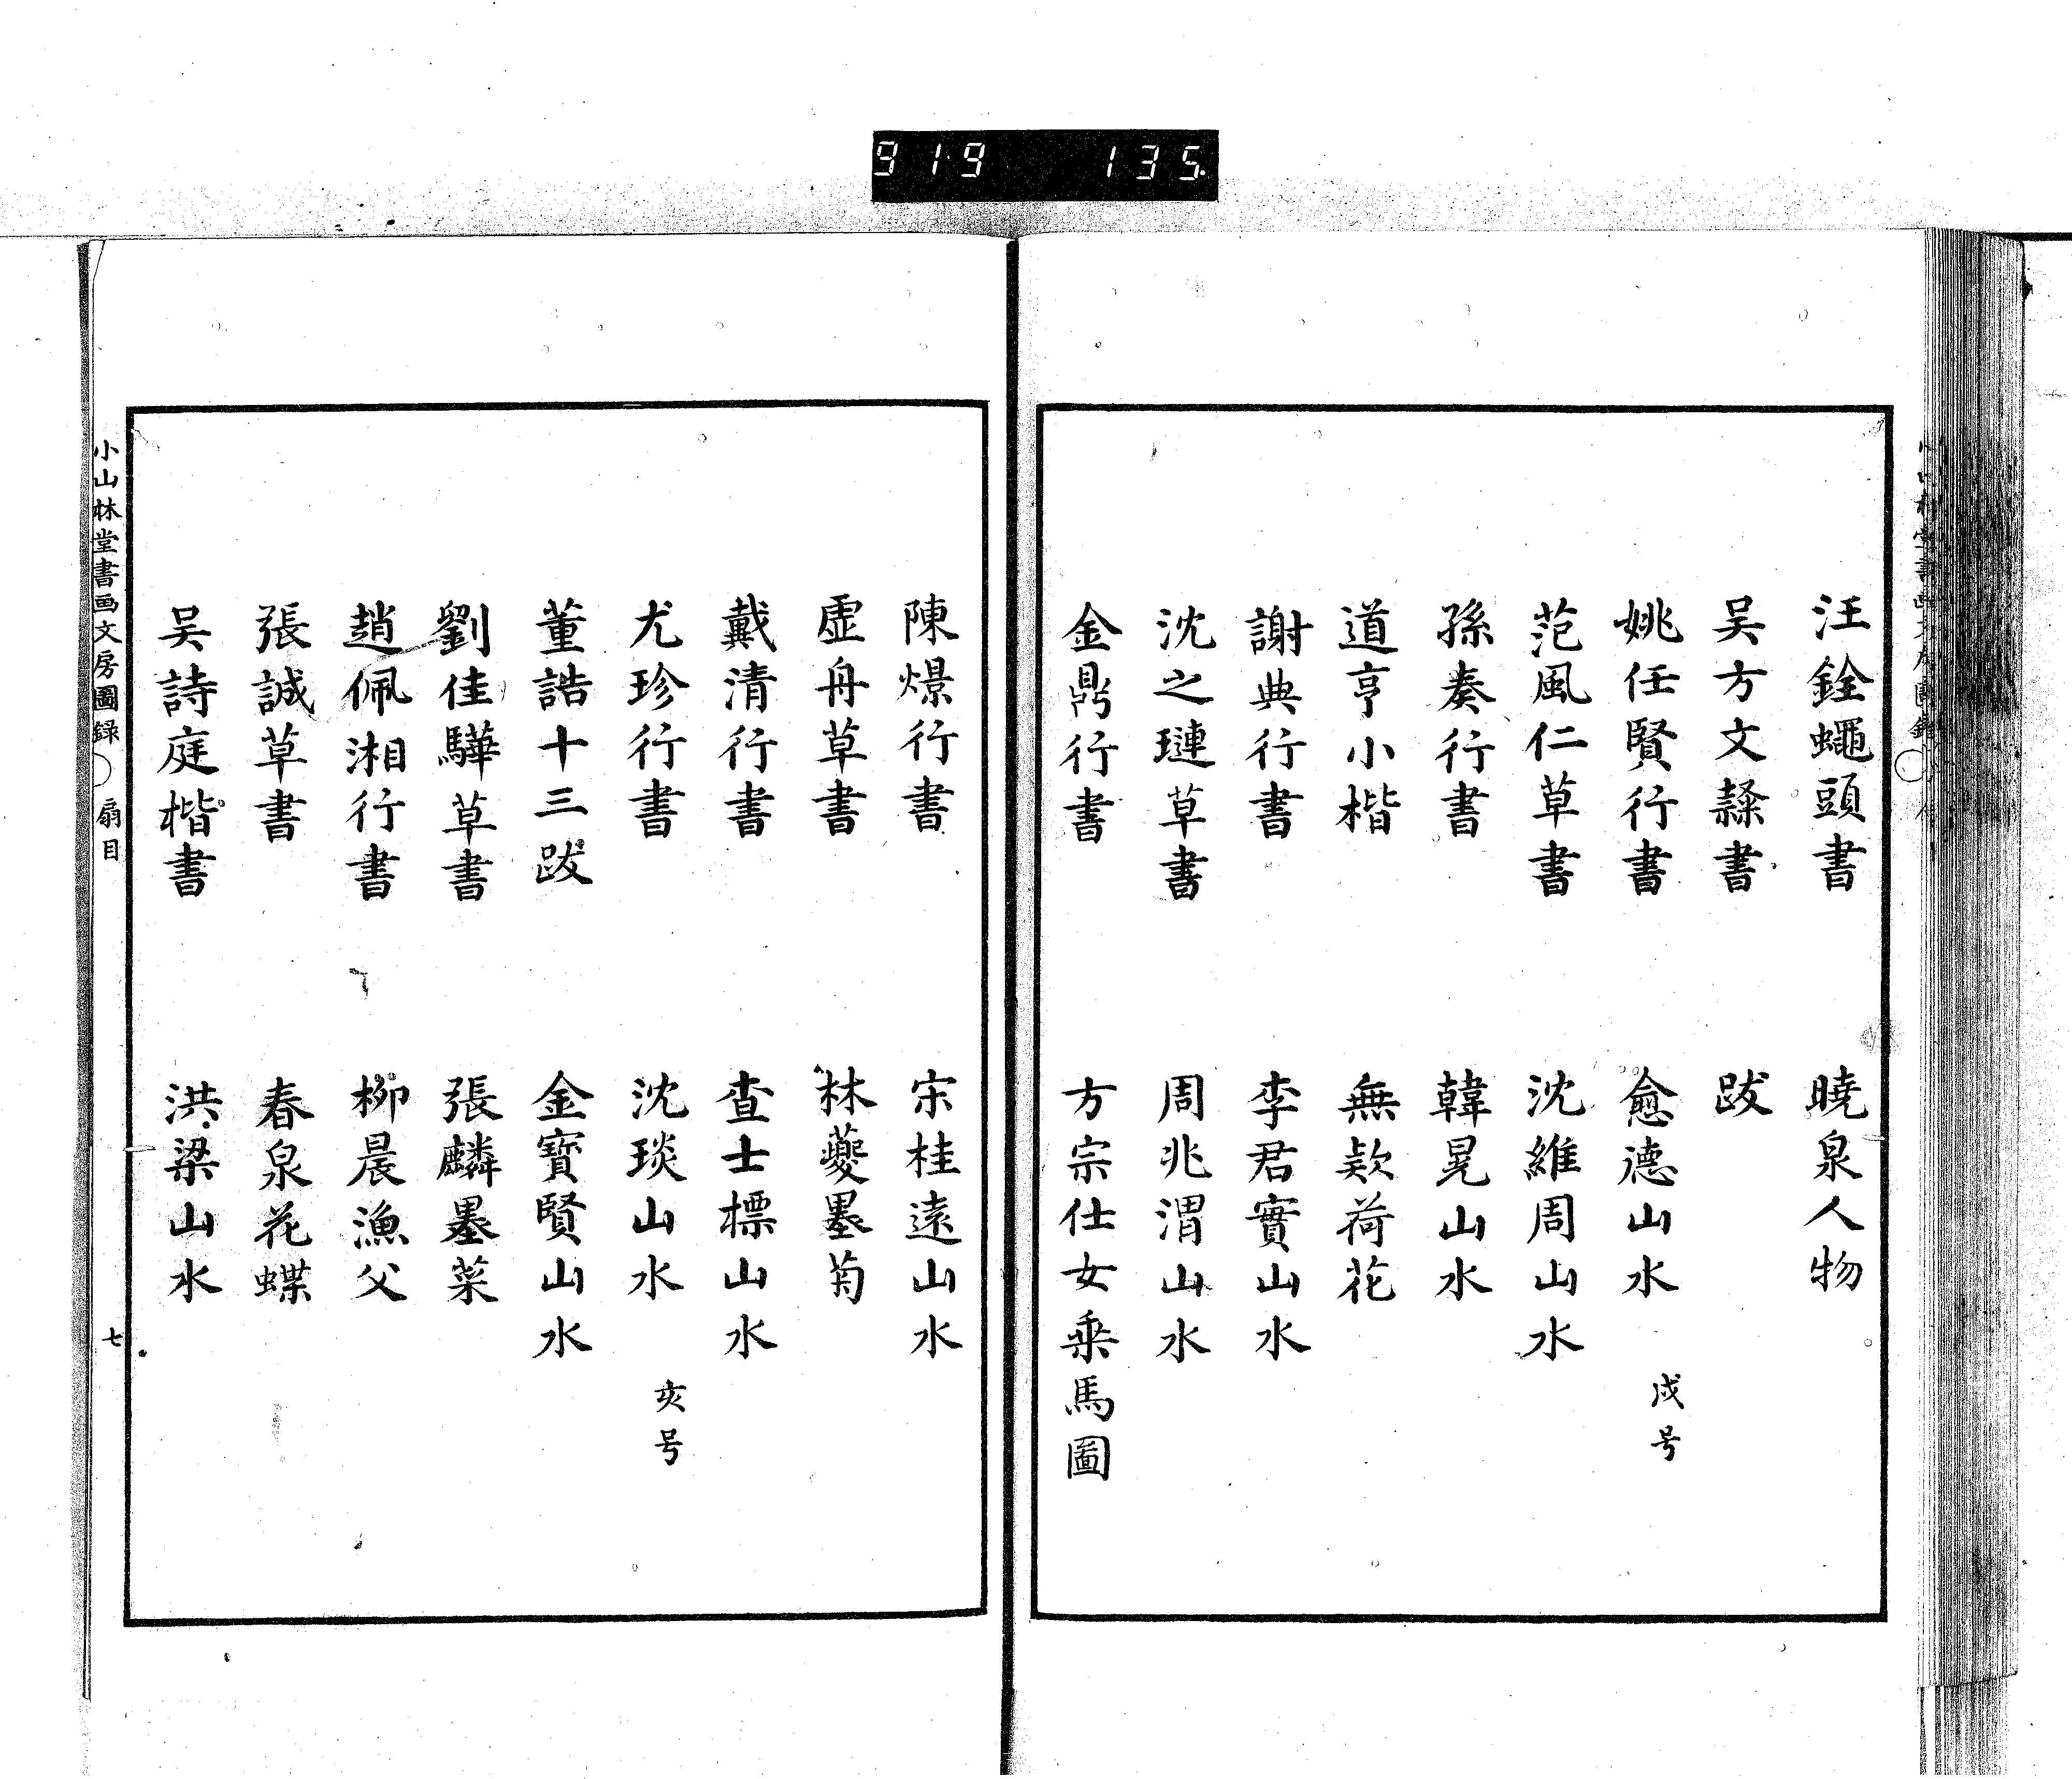 919 135
汪銓蠅頭書 曉泉人物
吴方文隸書 跋
姚任賢行書 愈德山水 戌号
范風仁草書 沈維周山水
孫奏行書 韓晃山水
道亨小楷 無款荷花
謝典行書 李君實山水
沈之璉草書 周兆渭山水
金鼎行書 方宗仕女乘馬圖
陳燝行書 宋桂遠山水
虚舟草書 林夔墨菊
戴清行書 査士標山水
尤珍行書 沈琰山水 亥号
董誥十三跋 金寶賢山水
劉佳驊草書 張麟墨菜
趙佩湘行書 柳晨漁父
張誠草書 春泉花蝶
吴詩庭楷書 洪梁山水
小山林堂書画文房圖録 扇目 七